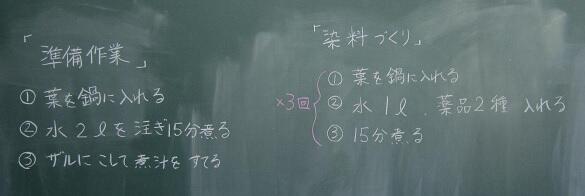 「準備作業」
① 葉を鍋に入れる
② 水2ℓを注ぎ15分煮る
③ ザルにこして煮汁をすてる
「染料づくり」
×3回
① 葉を鍋に入れる
② 水1ℓ、薬品2種 入れる
③ 15分煮る